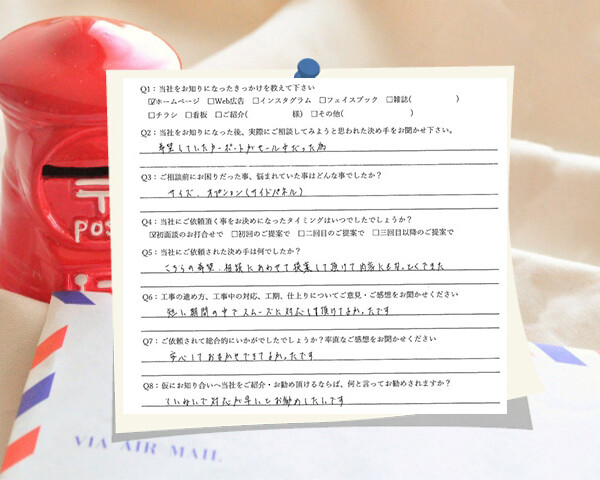 Q1：当社をお知りになったきっかけを教えて下さい
☑ホームページ □Web広告 □インスタグラム □フェイスブック □雑誌( )
□チラシ □看板 □ご紹介( 様) □その他( )
Q2：当社をお知りになった後、実際にご相談してみようと思われた決め手をお聞かせ下さい。
希望していたカーポートがセール中だった為
Q3：ご相談前にお困りだった事、悩まれていた事はどんな事でしたか？
サイズ、オプション(サイドパネル)
Q4：当社にご依頼頂く事をお決めになったタイミングはいつでしたでしょうか？
☑初面談のお打合せで □初回のご提案で □二回目のご提案で □三回目以降のご提案で
Q5：当社にご依頼された決め手は何でしたか？
こちらの希望、相談にあわせて提案して頂けて内容にもなっとくできた
Q6：工事の進め方、工事中の対応、工期、仕上りについてご意見・ご感想をお聞かせください
短い期間の中でスムーズに対応して頂けてよかったです
Q7：ご依頼されて総合的にいかがでしたでしょうか？率直なご感想をお聞かせください
安心しておまかせできてよかったです
Q8：仮にお知り合いへ当社をご紹介・お勧め頂けるならば、何と言ってお勧めされますか？
ていねいで対応が早いとお勧めしたいです
〒
POS
VIA AIR MAIL